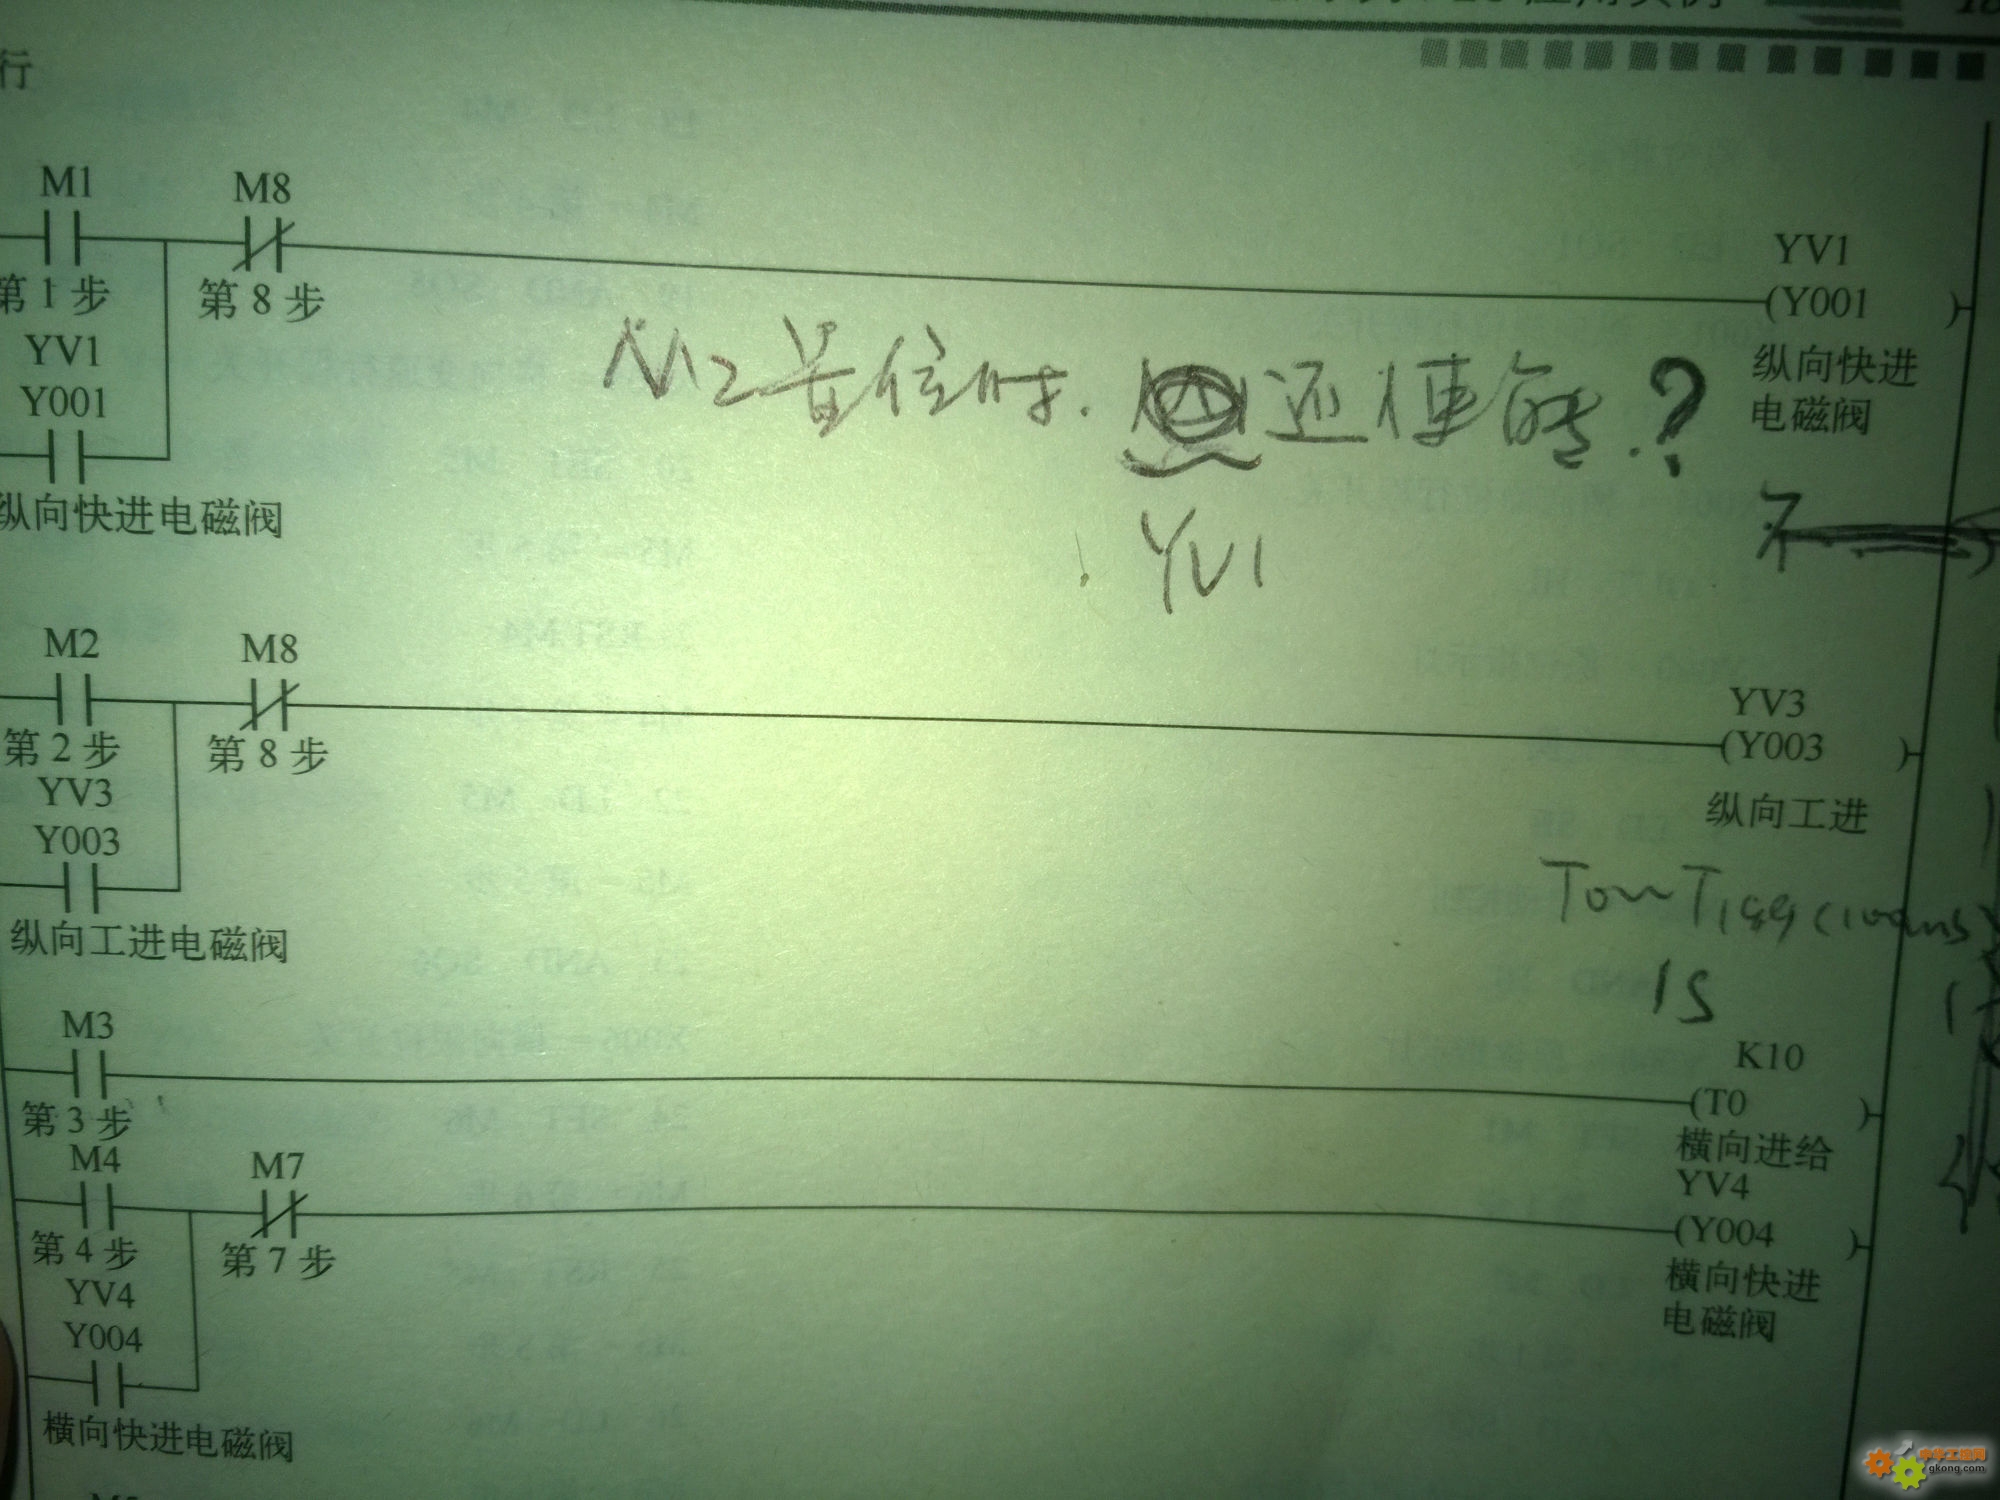 行
M1 M8
第1步 第8步
YV1
Y001
YV1
(Y001 )
纵向快进
电磁阀
M2置位时. 还使能.?
YV1
纵向快进电磁阀
M2 M8
第2步 第8步
YV3
Y003
YV3
(Y003 )
纵向工进
纵向工进电磁阀
1S
M3
第3步
K10
(T0 )
横向进给
M4 M7
第4步 第7步
YV4
Y004
YV4
(Y004 )
横向快进
电磁阀
横向快进电磁阀
中华工控网
gkong.com